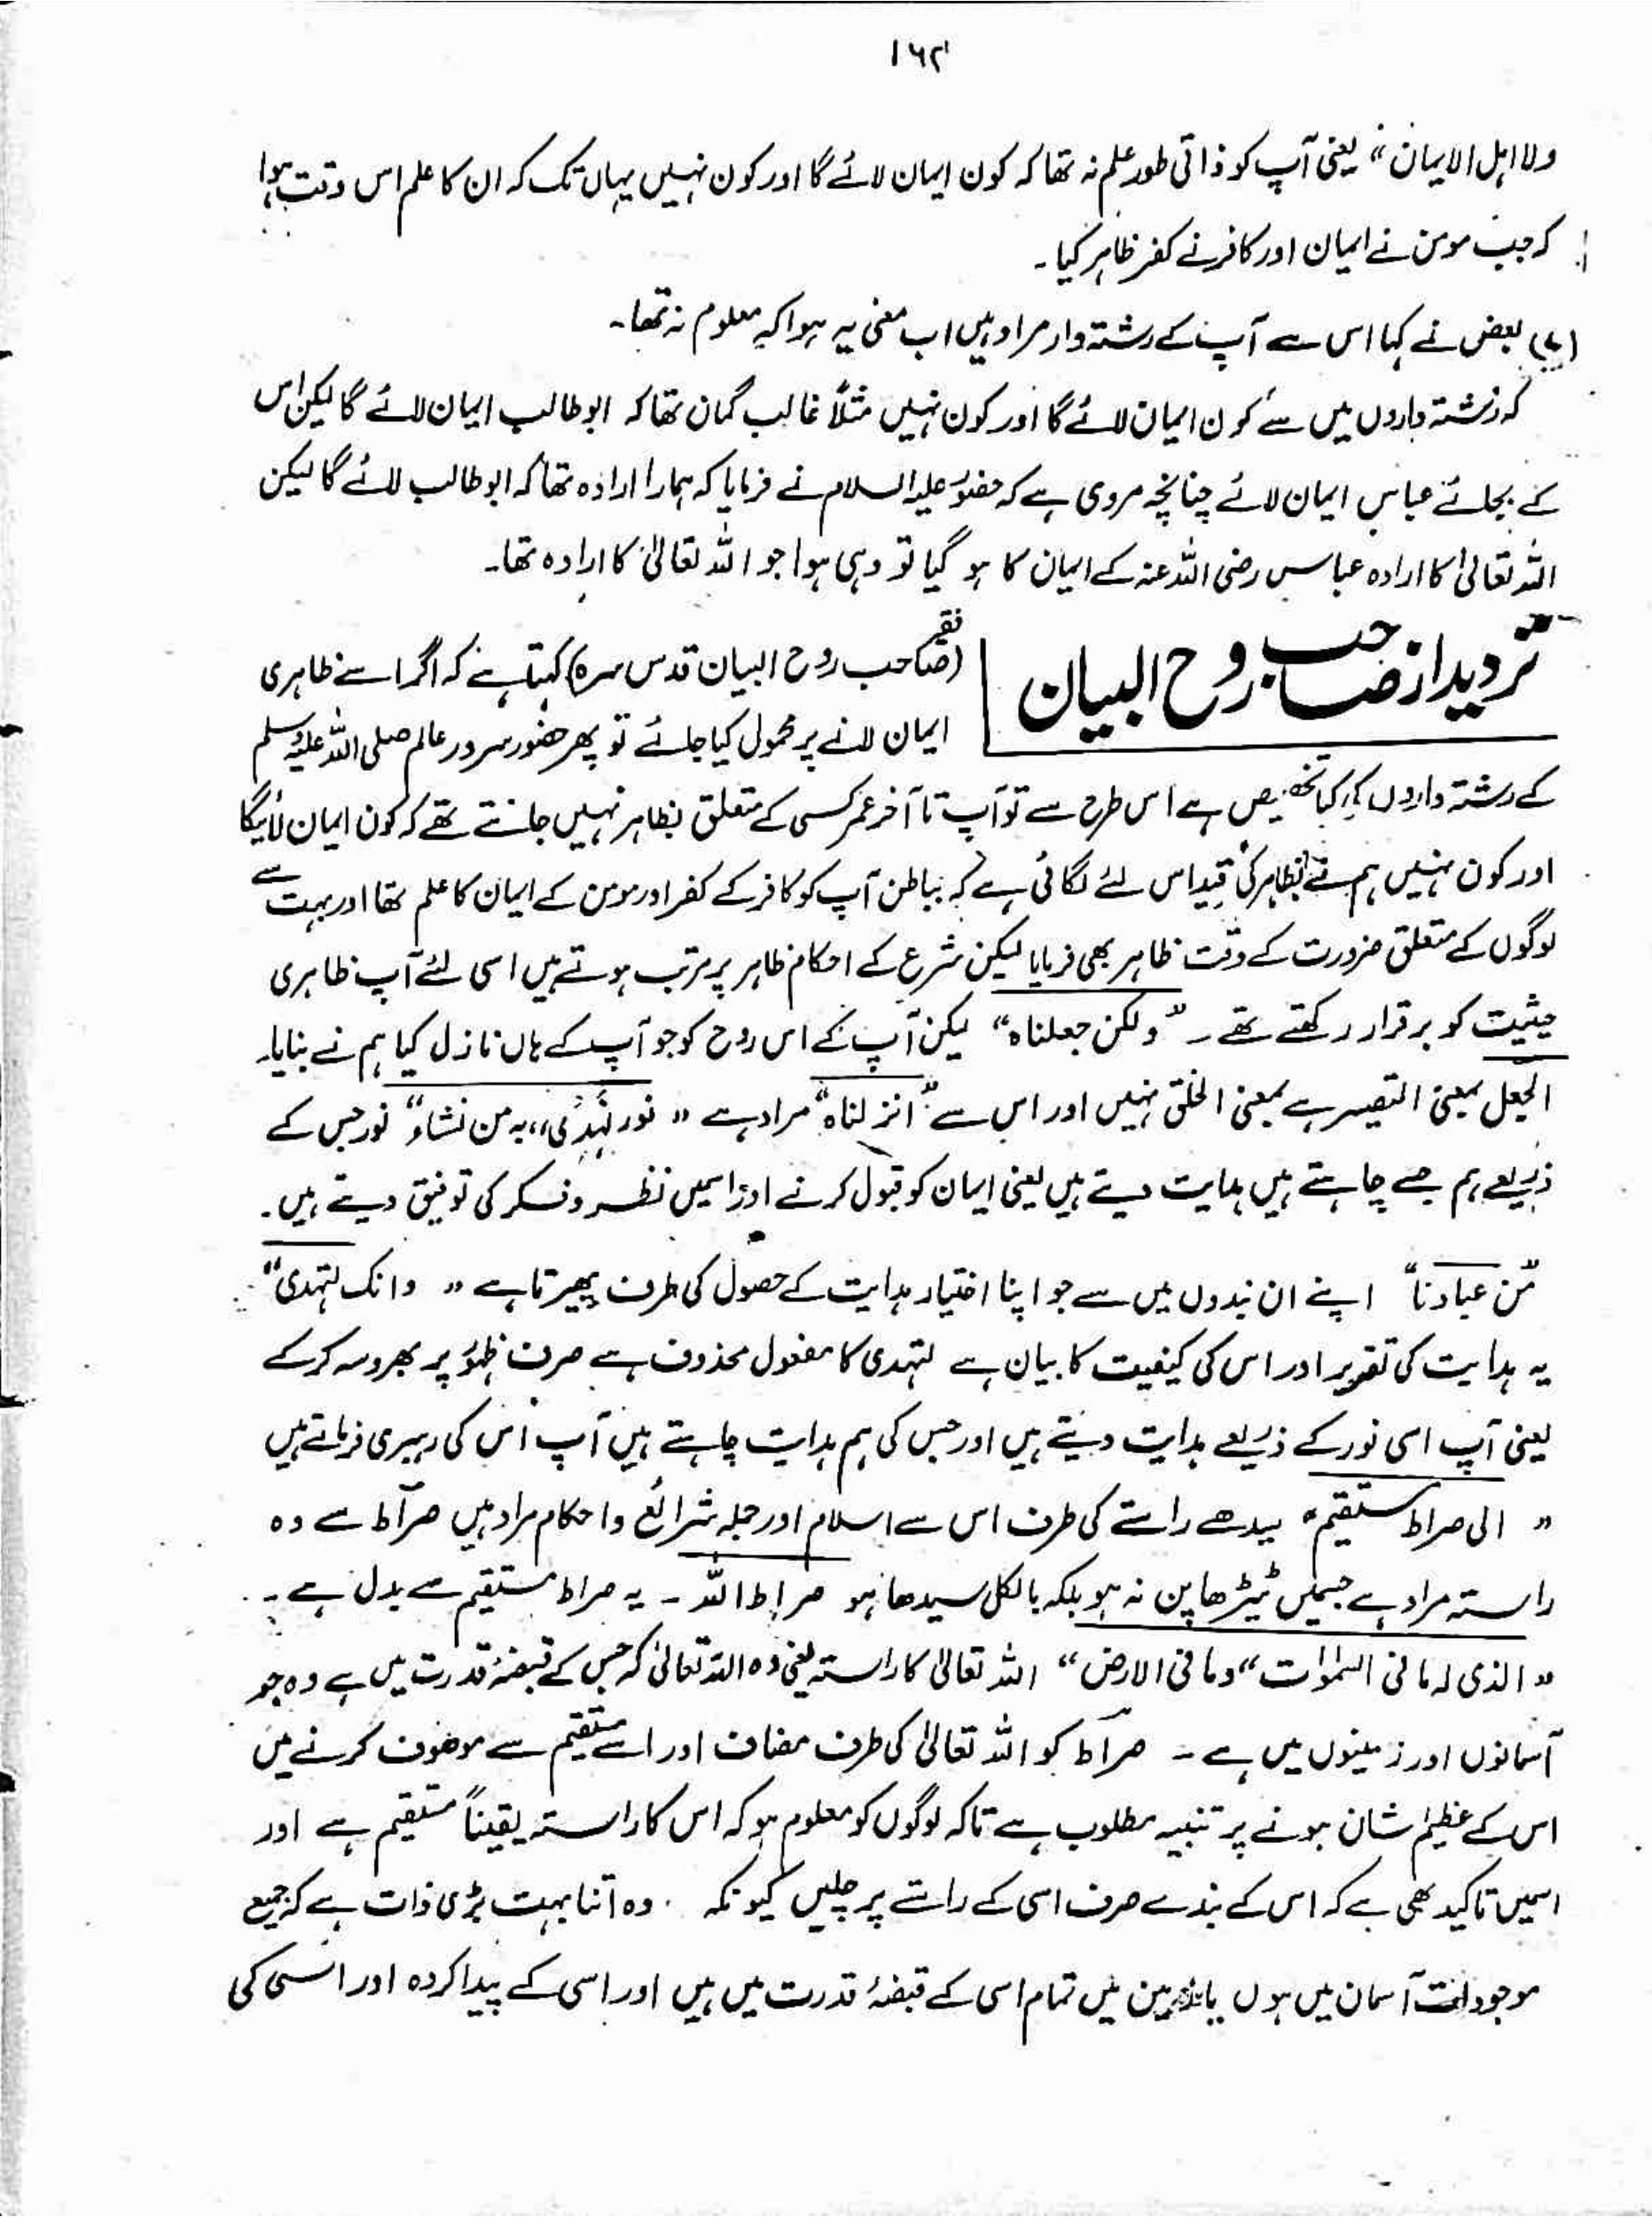 ۱۶۲
ولا اہل الایمان“ یعنی آپ کو ذاتی طور علم نہ تھا کہ کون ایمان لائے گا اور کون نہیں یہاں تک کہ ان کا علم اس وقت ہوا
کہ جب مومن نے ایمان اور کافر نے کفر ظاہر کیا۔
بعض نے کہا اس سے آپ کے رشتہ دار مراد ہیں اب معنی یہ ہوا کہ معلوم نہ تھا۔
کہ رشتہ داروں میں سے کون ایمان لائے گا اور کون نہیں مثلاً غالب گمان تھا کہ ابو طالب ایمان لائے گا لیکن اس
کے بجائے عباس ایمان لائے چنانچہ مروی ہے کہ حضور علیہ السلام نے فرمایا کہ ہمارا ارادہ تھا کہ ابو طالب لائے گا لیکن
اللہ تعالیٰ کا ارادہ عباس رضی اللہ عنہ کے ایمان کا ہو گیا تو وہی ہوا جو اللہ تعالیٰ کا ارادہ تھا۔
تردید از صاحب روح البیان
فقیر (صاحب روح البیان قدس سرہ) کہتا ہے کہ اگر اسے ظاہری
ایمان لانے پر محمول کیا جائے تو پھر حضور سرور عالم صلی اللہ علیہ وسلم
کے رشتہ داروں کی کیا تخصیص ہے اس طرح سے تو آپ تا آخر عمر کسی کے متعلق بظاہر نہیں جانتے تھے کہ کون ایمان لائیگا
اور کون نہیں ہم نے بظاہر کی قید اس لئے لگائی ہے کہ بباطن آپ کو کافر کے کفر اور مومن کے ایمان کا علم تھا اور بہت سے
لوگوں کے متعلق ضرورت کے وقت ظاہر بھی فرمایا لیکن شرع کے احکام ظاہر پر مرتب ہوتے ہیں اسی لئے آپ ظاہری
حیثیت کو برقرار رکھتے تھے۔ ”ولکن جعلناہ“ لیکن آپ کے اس روح کو جو آپ کے ہاں نازل کیا ہم نے بنایا۔
الجعل بمعنی التصییر ہے بمعنی الخلق نہیں اور اس سے ”انزلناہ“ مراد ہے ”نور نہدی،، بہ من نشاء“ نور جس کے
ذریعے ہم جسے چاہتے ہیں ہدایت دیتے ہیں یعنی ایمان کو قبول کرنے اور اسمیں نظر و فکر کی توفیق دیتے ہیں۔
”من عبادنا“ اپنے ان بندوں میں سے جو اپنا اختیار ہدایت کے حصول کی طرف پھیرتا ہے ”وانک لتہدی“
یہ ہدایت کی تقریر اور اس کی کیفیت کا بیان ہے لتہدی کا مفعول محذوف ہے صرف ظہور پر بھروسہ کر کے
یعنی آپ اسی نور کے ذریعے ہدایت دیتے ہیں اور جس کی ہم ہدایت چاہتے ہیں آپ اس کی رہبری فرماتے ہیں
”الی صراط مستقیم“ سیدھے راستے کی طرف اس سے اسلام اور جملہ شرائع و احکام مراد ہیں صراط سے وہ
راستہ مراد ہے جسمیں ٹیڑھاپن نہ ہو بلکہ بالکل سیدھا ہو صراط اللہ ۔ یہ صراط مستقیم سے بدل ہے۔
”الذی لہ مافی السمٰوٰت“ ”ومافی الارض“ اللہ تعالیٰ کا راستہ یعنی وہ اللہ تعالیٰ کہ جس کے قبضۂ قدرت میں ہے وہ جو
آسمانوں اور زمینوں میں ہے۔ صراط کو اللہ تعالیٰ کی طرف مضاف اور اسے مستقیم سے موصوف کرنے میں
اس کے عظیم شان ہونے پر تنبیہ مطلوب ہے تاکہ لوگوں کو معلوم ہو کہ اس کا راستہ یقیناً مستقیم ہے اور
اسمیں تاکید بھی ہے کہ اس کے بندے صرف اسی کے راستے پر چلیں کیونکہ وہ اتنا بہت بڑی ذات ہے کہ جمیع
موجودات آسمان میں ہوں یا زمین میں تمام اسی کے قبضۂ قدرت میں ہیں اور اسی کے پیدا کردہ اور اسی کی